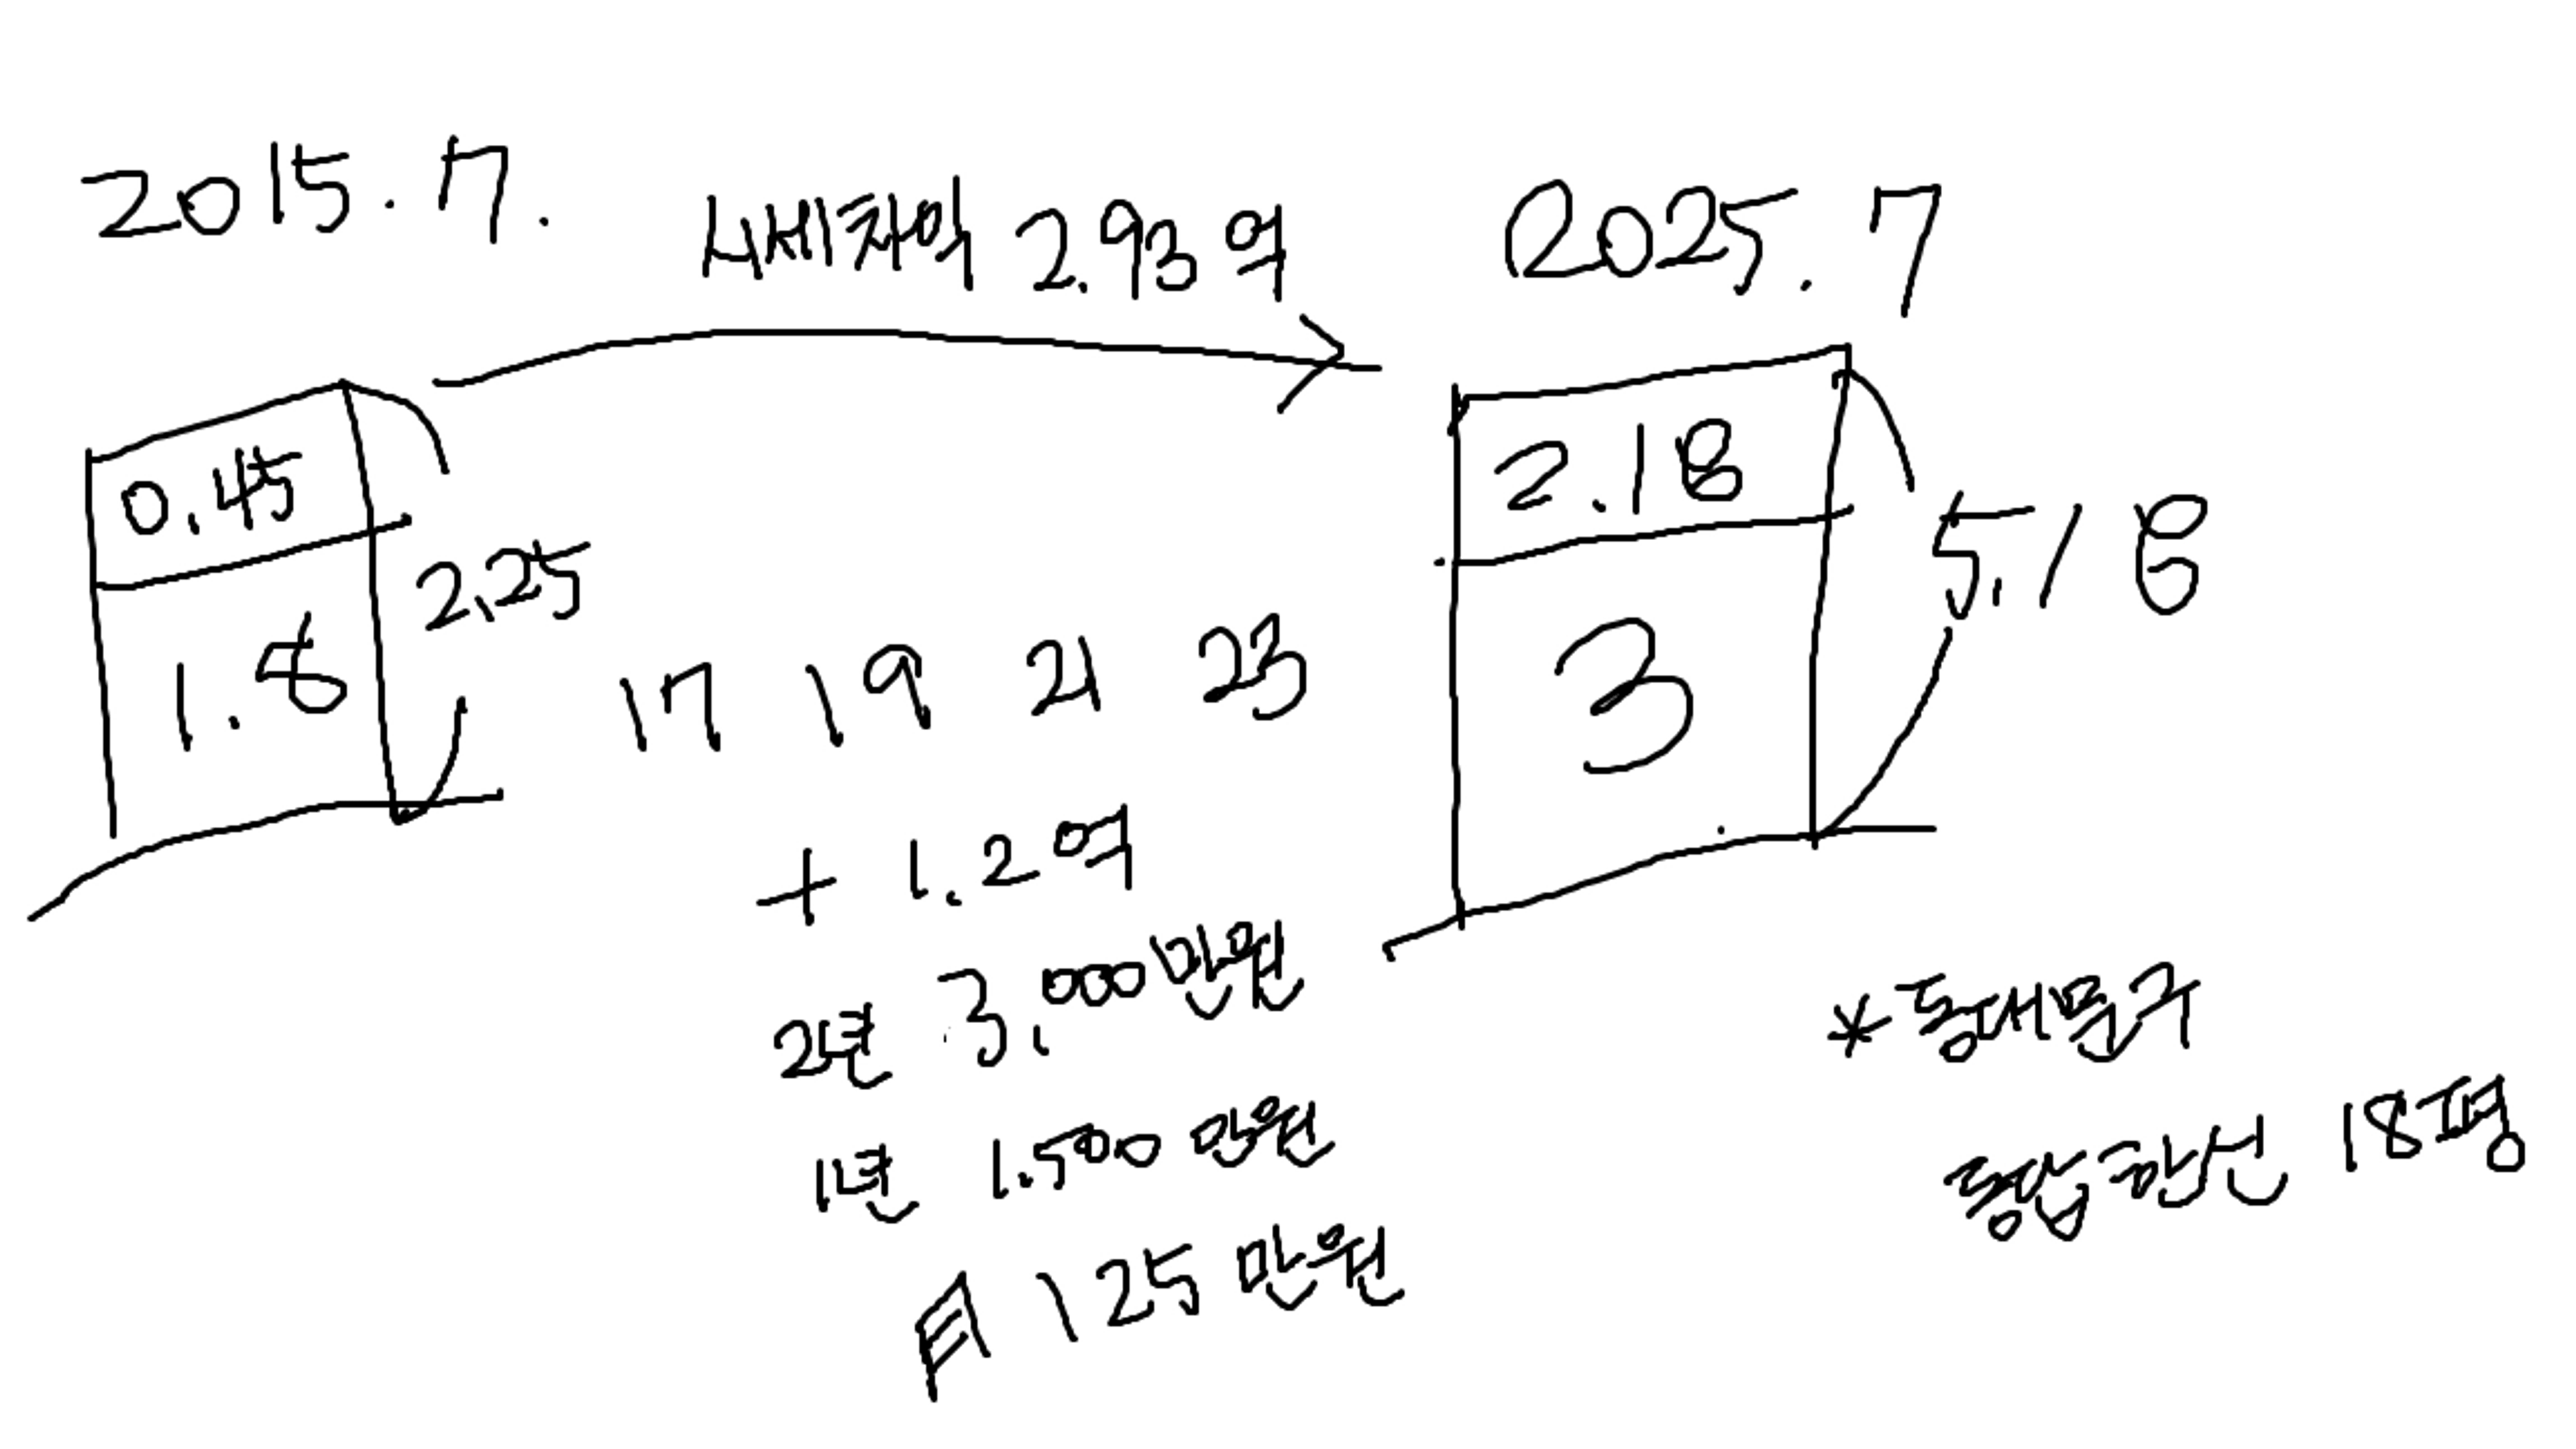 2015.7.
시세차액 2.93억
2025.7
0.45
1.8
2.25
2.18
3
5.18
17 19 21 23
+ 1.2억
2년 3,000만원
1년 1.500만원
月 125만원
*동대문구
18평